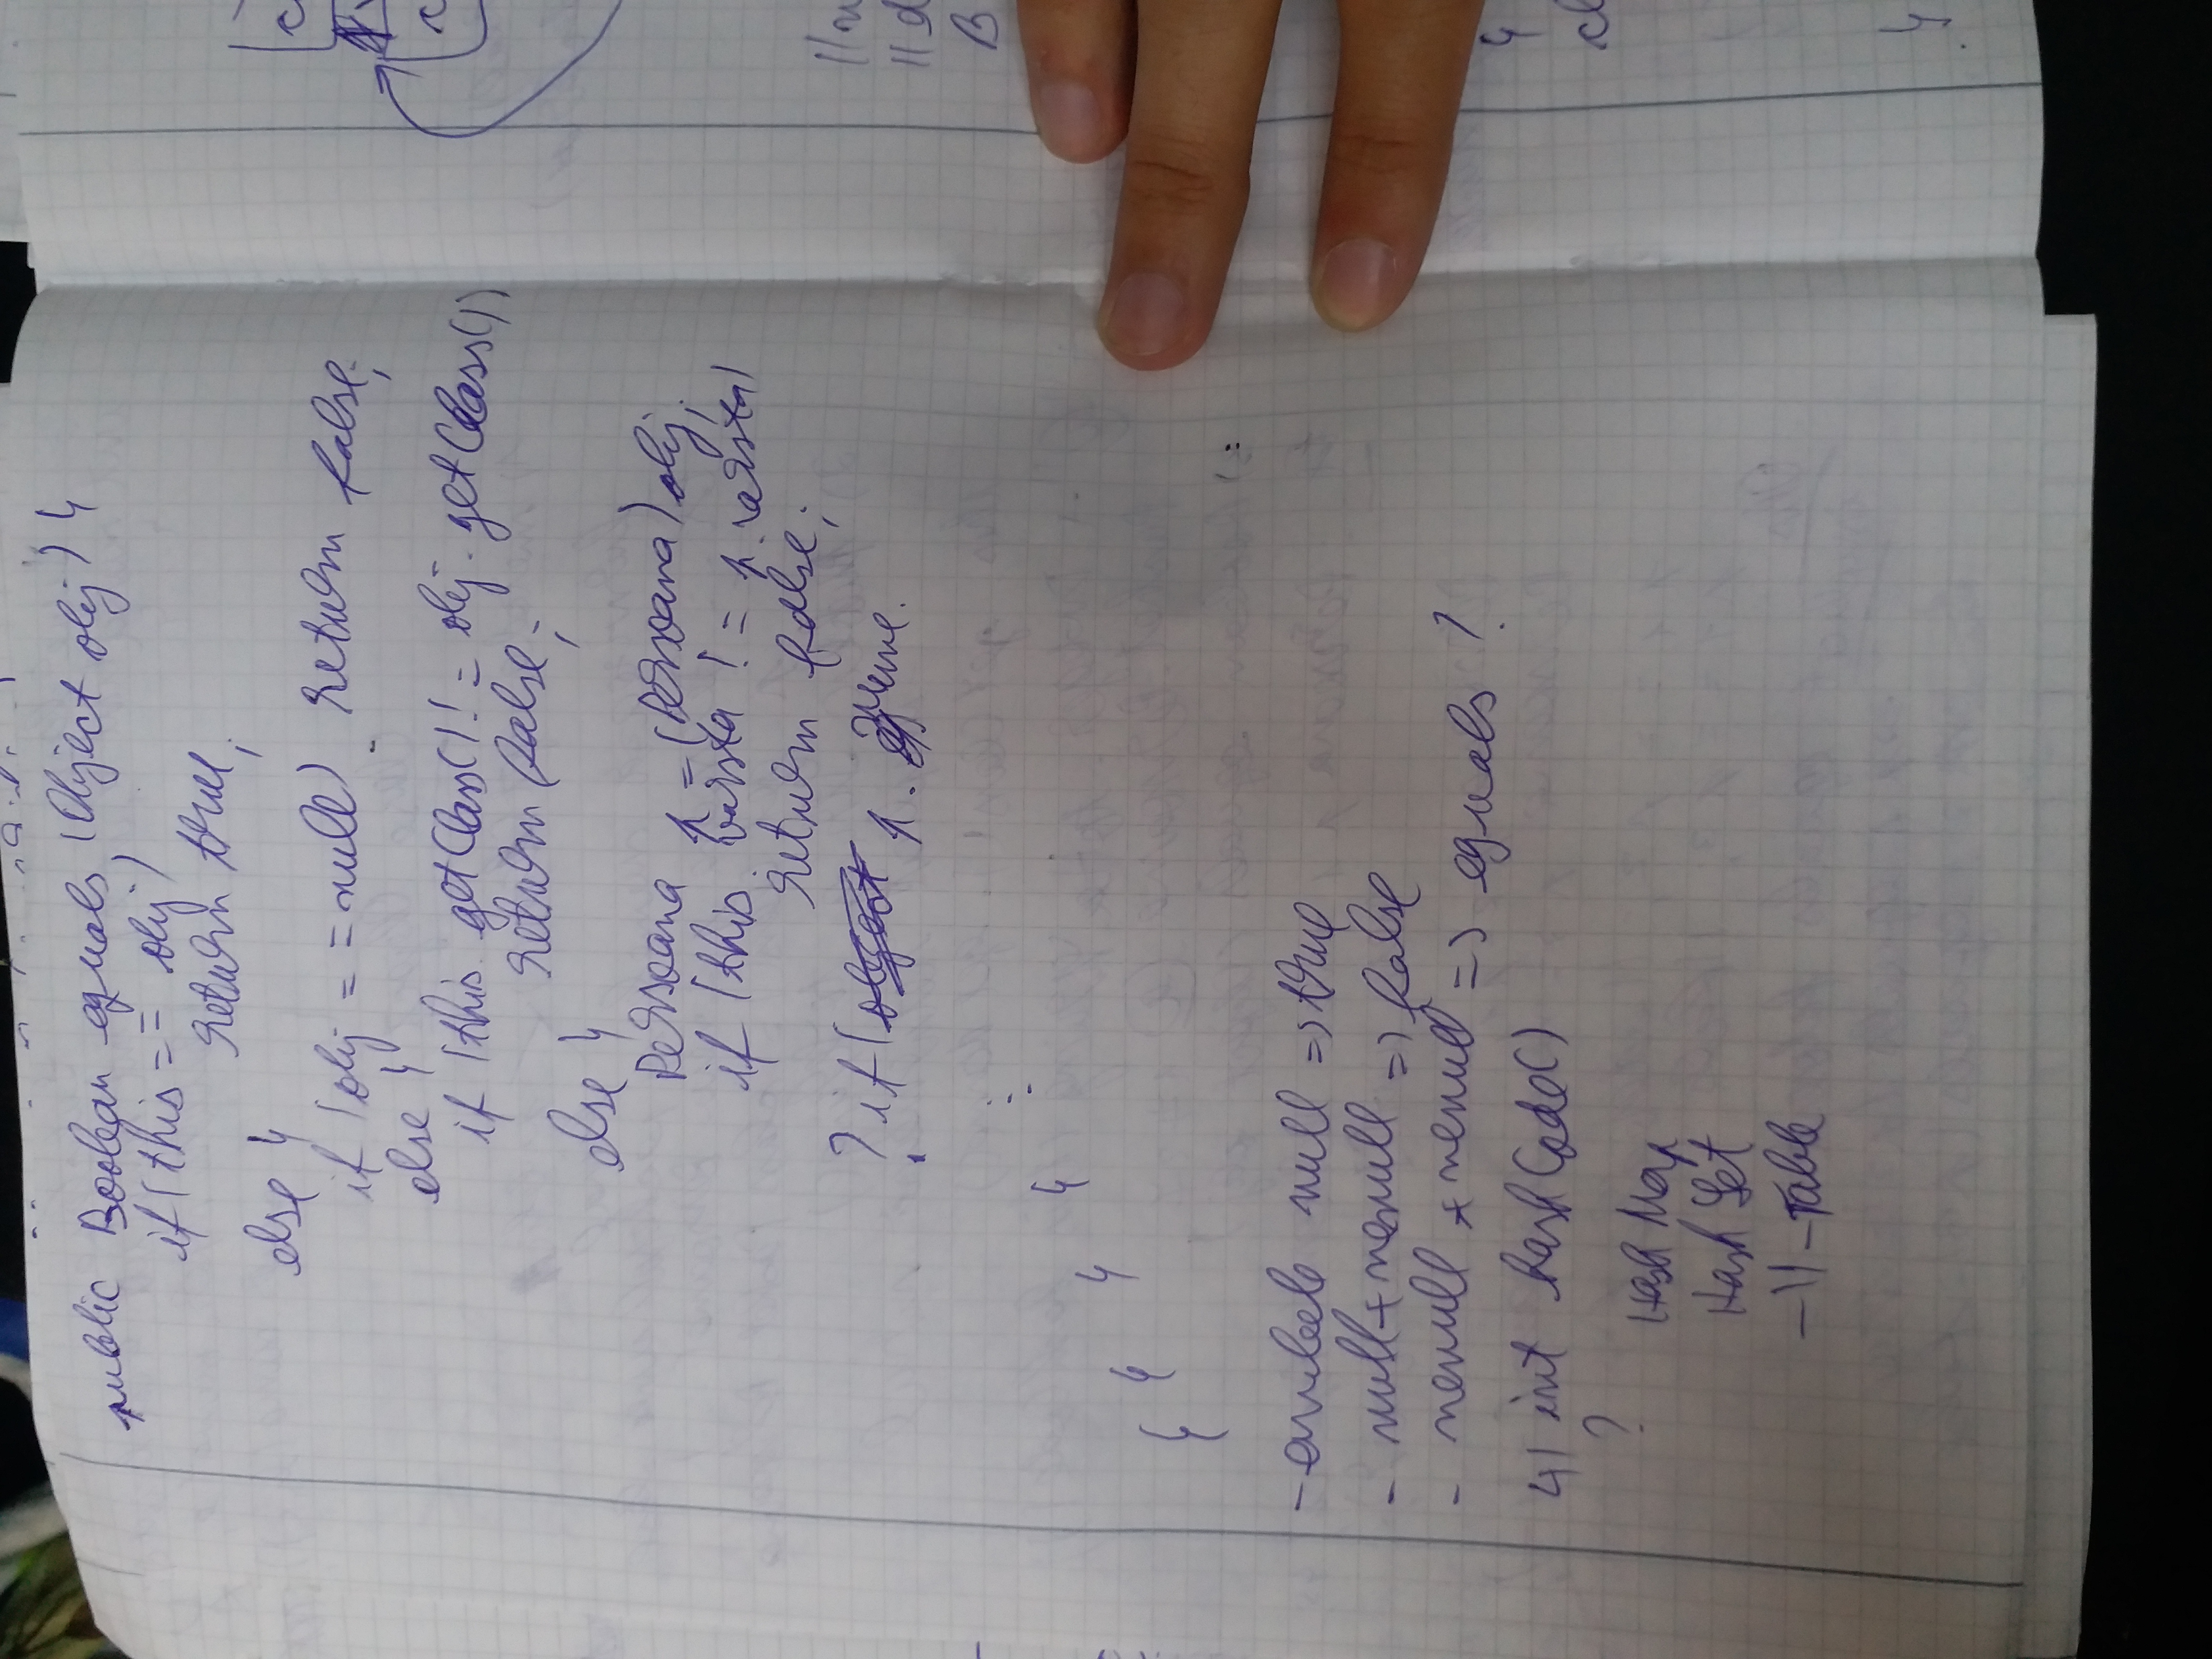 public Boolean equals (Object obj) {
if (this == obj)
return true;
else {
if (obj == null) return false;
else {
if (this.getClass() != obj.getClass())
return false;
else {
Persoana p = (Persoana) obj;
if (this.varsta != p.varsta)
return false;
? if ( p. nume.
:
}
}
}
}
- ambele null => true
- null + nenull => false
- nenull + nenull => equals ?
4) int hashCode()
?
Hash Map
Hash Set
-11- Table